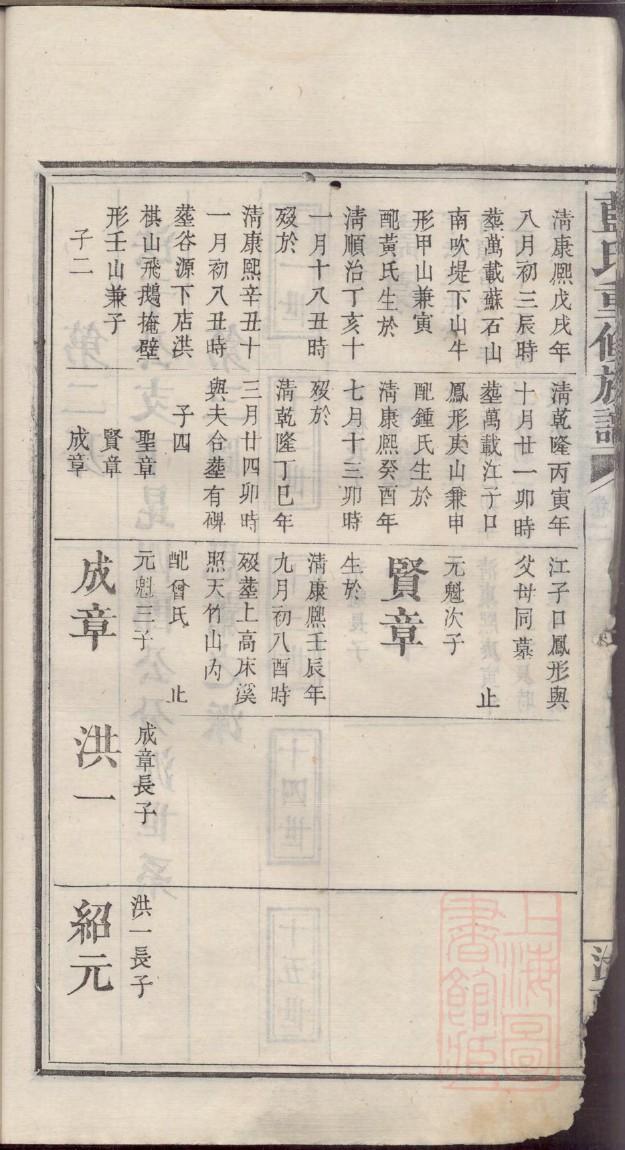 藍氏重修族譜
清康熙戊戌年
八月初三辰時
塟萬載蘇石山
南吹堤下山牛
形甲山兼寅
配黃氏生於
清順治丁亥十
一月十八丑時
歿於
清康熙辛丑十
一月初八丑時
塟谷源下店洪
棋山飛鵝掩壁
形壬山兼子
子二
清乾隆丙寅年
十月廿一卯時
塟萬載江子口
鳳形庚山兼申
配鍾氏生於
清康熙癸酉年
七月十三卯時
歿於
清乾隆丁巳年
三月廿四卯時
與夫合塟有碑
子四
聖章
賢章
成章
江子口鳳形與
父母同墓
止
元魁次子
賢章
生於
清康熙壬辰年
九月初八酉時
歿塟上高床溪
照天竹山內
配曾氏 止
元魁三子
成章
成章長子
洪一
洪一長子
紹元
上海圖
書館藏